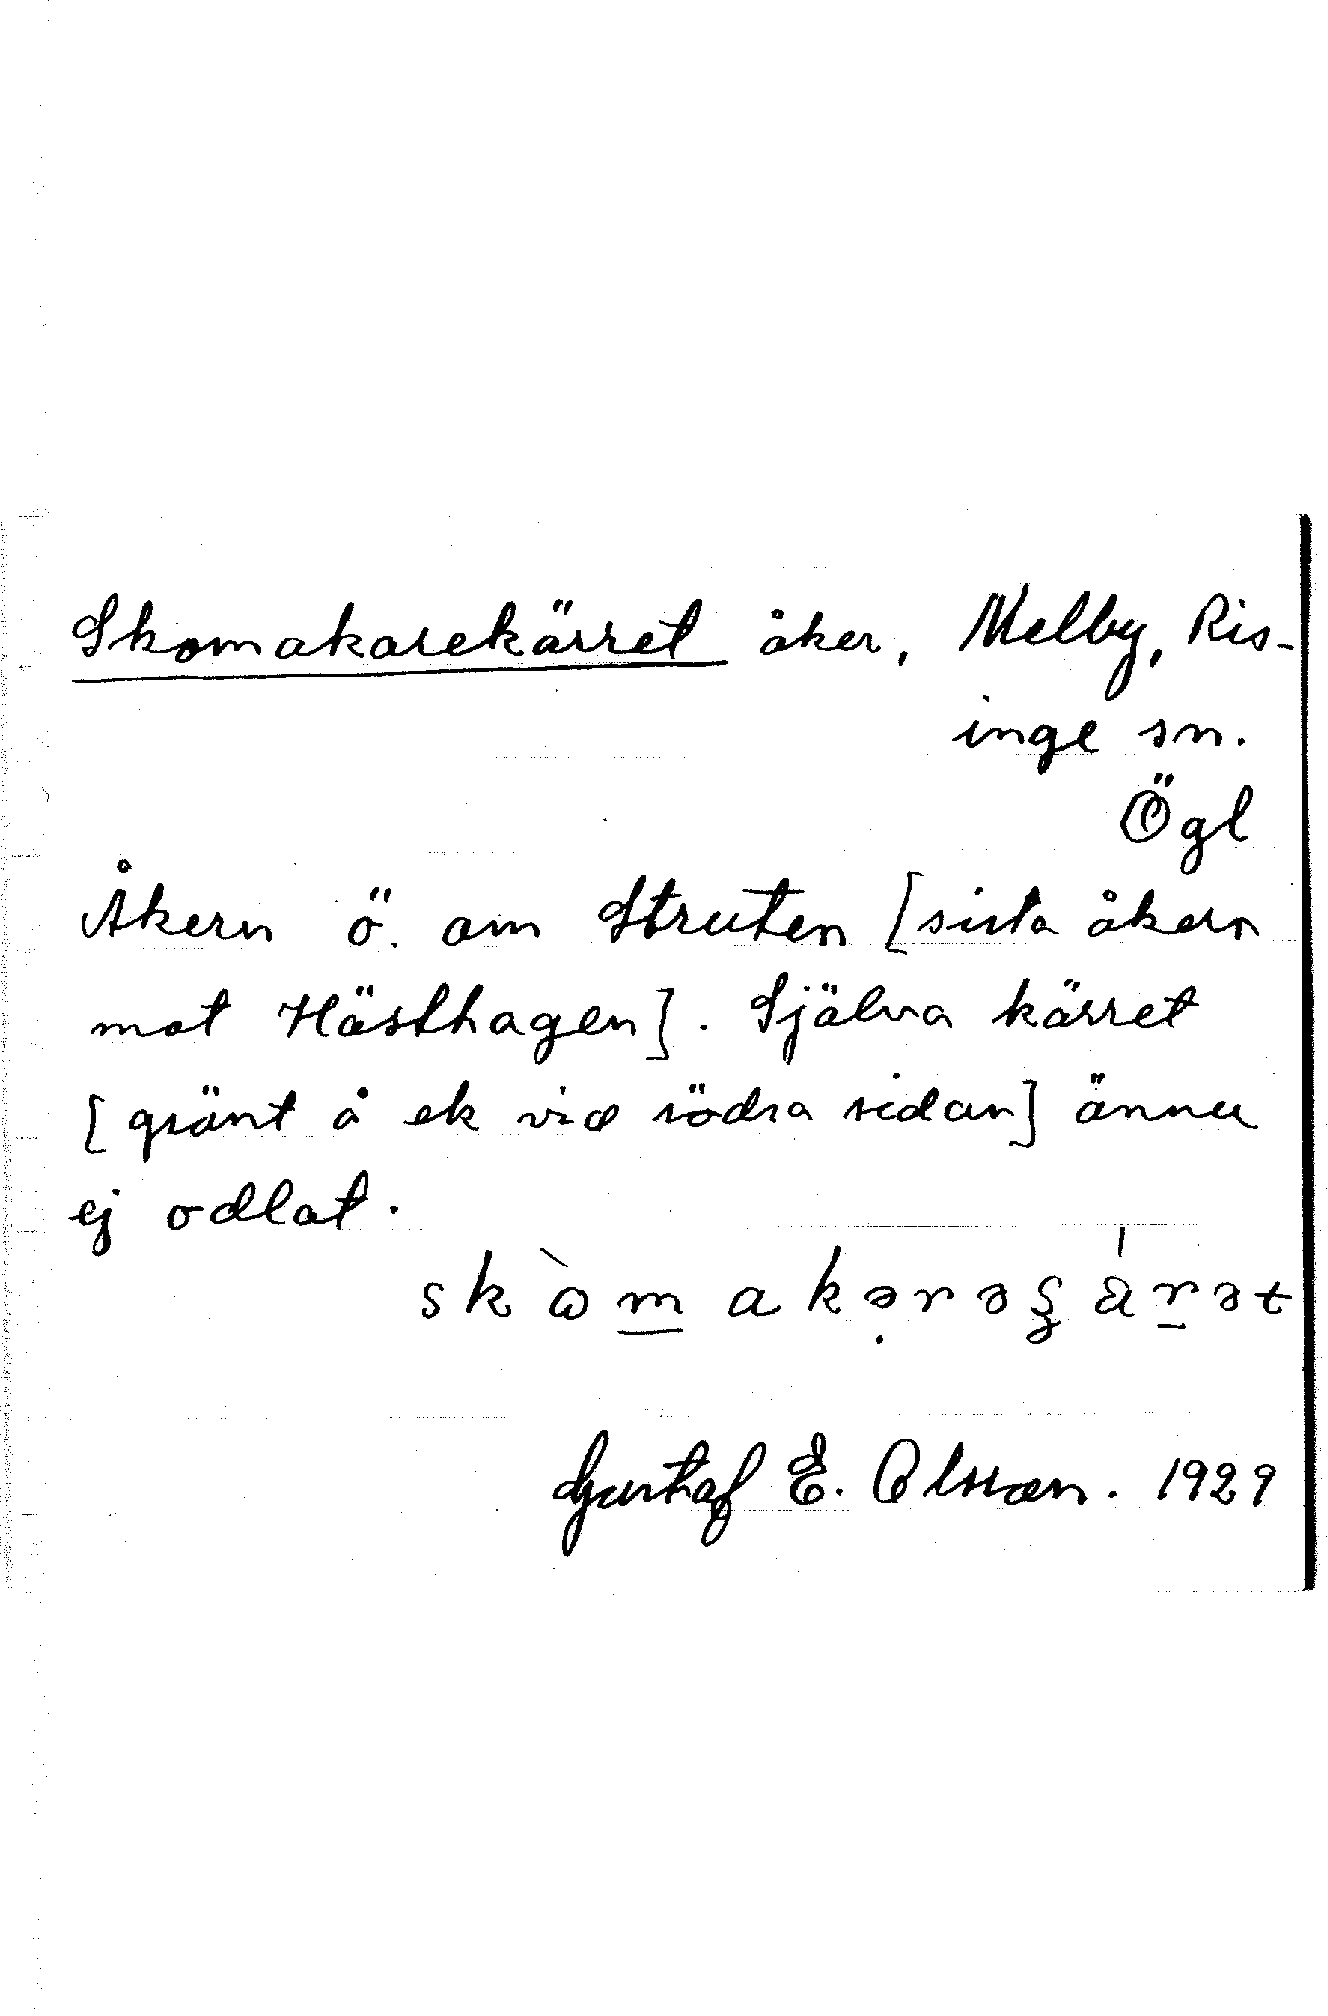 Skomakarekärret åker, Melby, Ris-
inge sn.
Ögl
Åkern ö. om Struten [sista åkern
mot Hästhagen]. Själva kärret
[gränt å ek vid södra sidan] ännu
ej odlat.
Gustaf E. Olsson. 1929